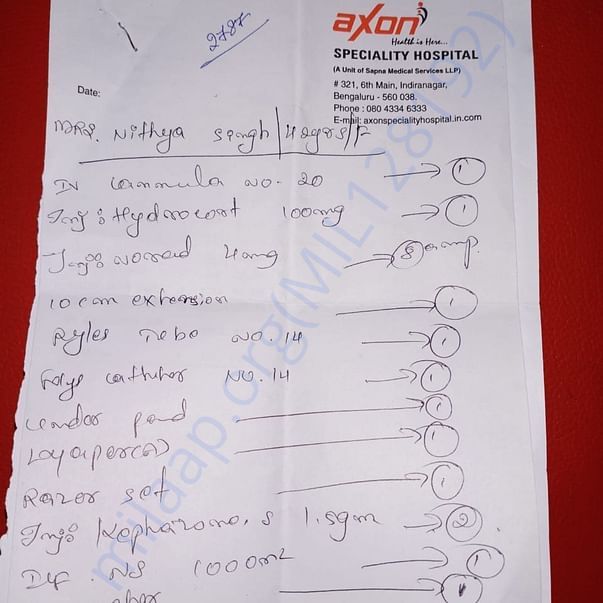 2787
axon
Health is Here...
SPECIALITY HOSPITAL
(A Unit of Sapna Medical Services LLP)
# 321, 6th Main, Indiranagar,
Bengaluru - 560 038.
Phone : 080 4334 6333
E-mail: axonspecialityhospital.in.com
Date:
MRS. Nithya Singh / 42yrs / F
IV Cannula NO. 20 → 1
Inj: Hydrocort 100mg → 1
Inj: Norad 4mg → 8 amp.
10 cm extension 1
Ryles Tube NO. 14 → 1
Folys cathter NO. 14 → 1
under pad → 1
→ 1
Razor set → 1
Inj: 1.5gm → 2
NS 1000ml → 1
milaap.org(MIL128192)